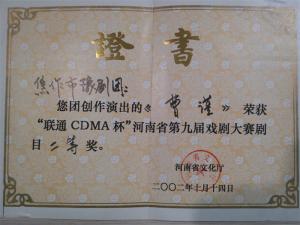 證書
焦作市豫剧团:
您团创作演出的《曹谨》荣获
“联通CDMA杯”河南省第九届戏剧大赛剧
目二等奖。
河南省文化厅
二〇〇二年十月十四日